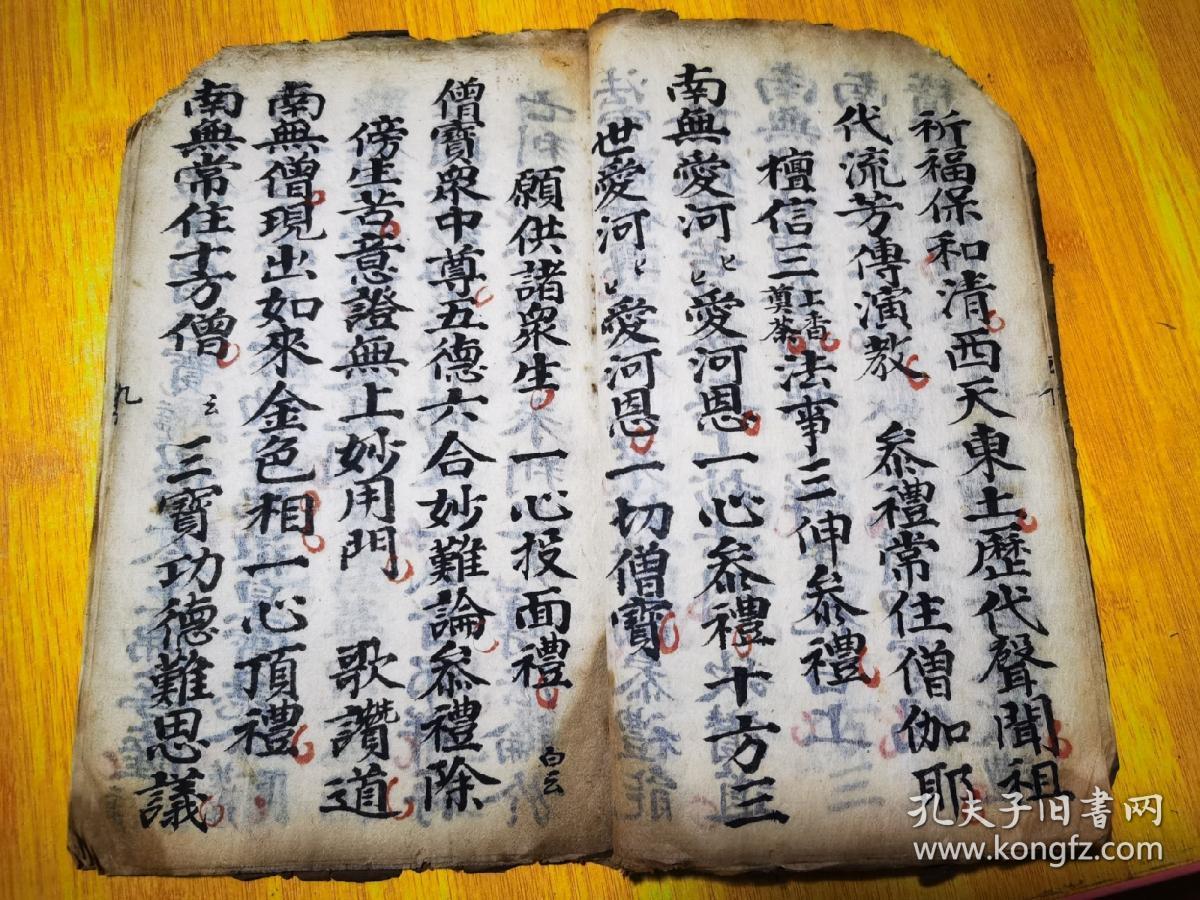 祈福保和清西天東土歷代聲聞祖
代流芳傳演教 叅禮常住僧伽耶
檀信三上香奠茶法事三伸叅禮
南無愛河〻愛河恩一心叅禮十方三
世愛河〻愛河恩一切僧寶
願供諸衆生一心投面禮 白云
僧寶衆中尊五德六合妙難論叅禮除
傍生苦意證無上妙用門 歌讚道
南無僧現出如來金色相一心頂禮
南無常住十方僧 云 三寶功德難思議
九
孔夫子旧书网
www.kongfz.com